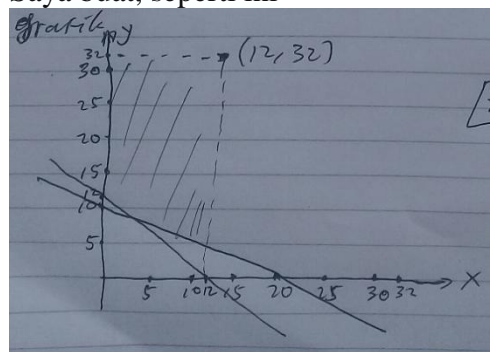 Grafik
y
32
(12, 32)
30
25
20
15
10
5
5 10 12 15 20 25 30 32 X